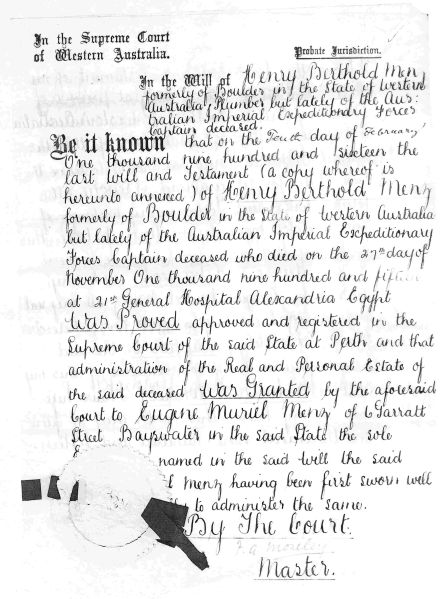 In the Supreme Court
of Western Australia.
Probate Jurisdiction.
In the Will of Henry Berthold Men
formerly of Boulder in the State of Western
Australia, Plumber but lately of the Aus:
tralian Imperial Expeditionary Forces
Captain deceased.
Be it known that on the day of February
One thousand nine hundred and sixteen the
last Will and Testament (a copy whereof is
hereunto annexed) of Henry Berthold Menz
formerly of Boulder in the State of Western Australia
but lately of the Australian Imperial Expeditionary
Forces Captain deceased who died on the 27th day of
November One thousand nine hundred and
at 21st General Hospital Alexandria Egypt
Was Proved approved and registered in the
Supreme Court of the said State at Perth and that
administration of the Real and Personal Estate of
the said deceased Was Granted by the aforesaid
Court to Eugene Muriel Menz of 6 Garratt
Street Bayswater in the said State the sole
named in the said will the said
Menz having been first sworn well
to administer the same.
By The Court.
Master.